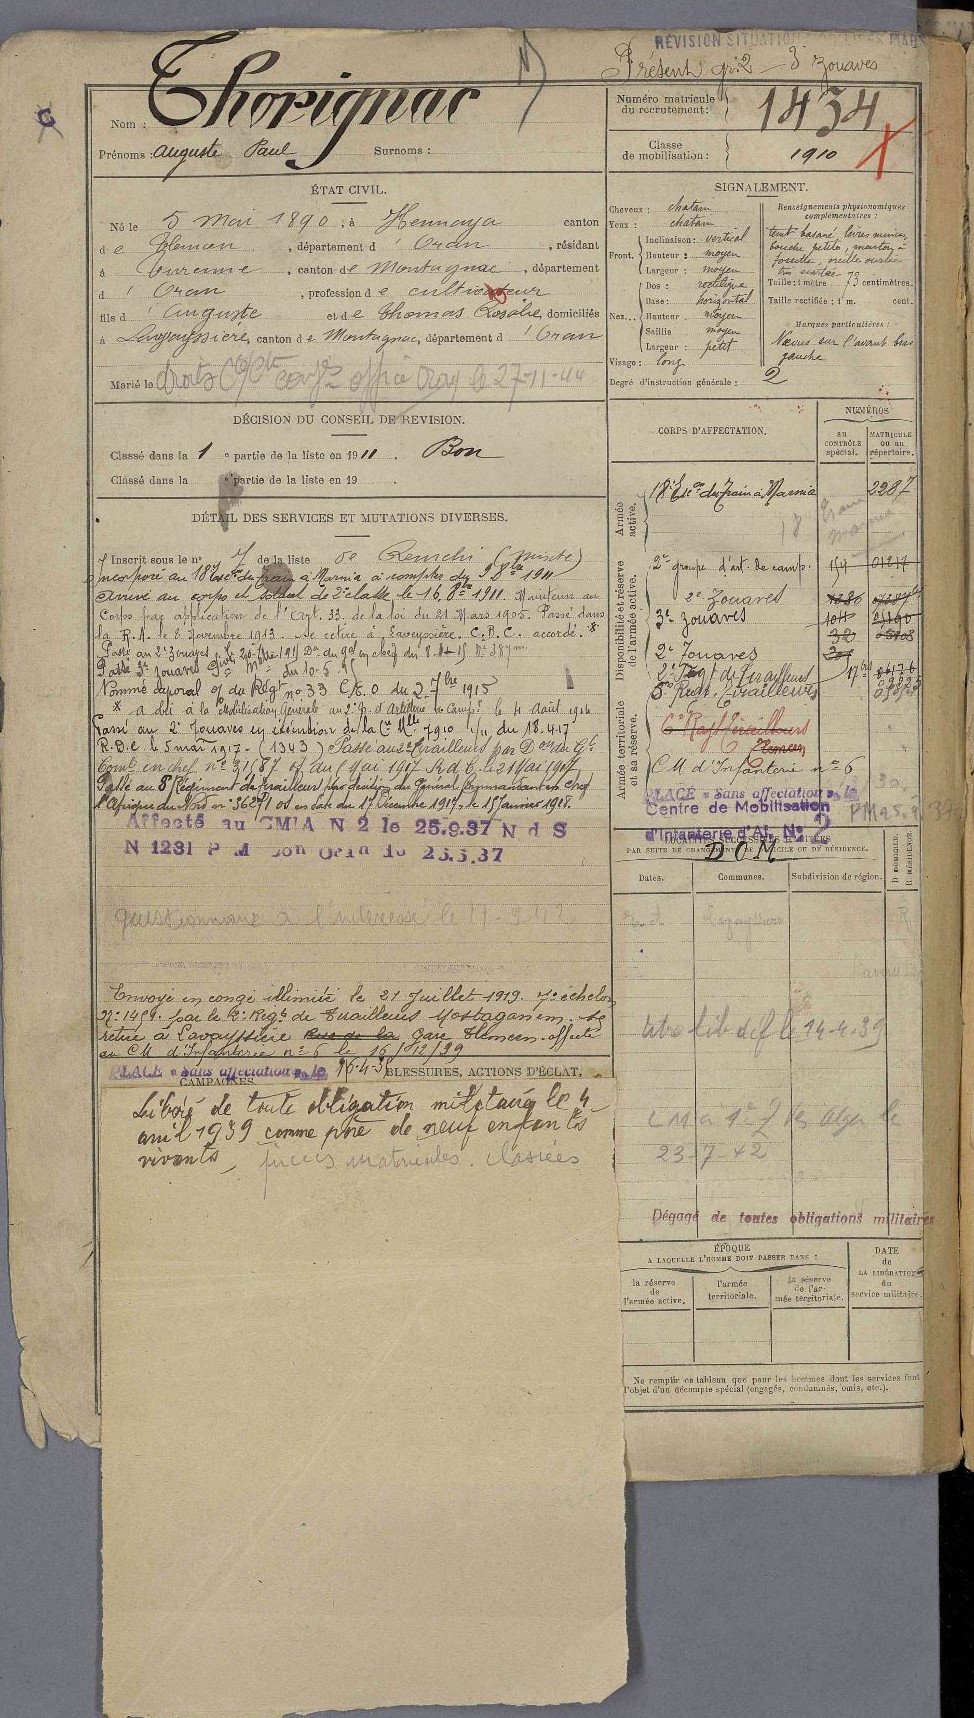 RÉVISION SITUATION
Présent gr. 2 3 Zouaves
Nom : Thorignac
Prénoms : Auguste Paul Surnoms :
Numéro matricule du recrutement : 1434
Classe de mobilisation : 1910
ÉTAT CIVIL.
Né le 5 mai 1890, à Hennaya canton
de Tlemcen, département d'Oran, résidant
à Turenne, canton de Montagnac, département
d'Oran, profession de cultivateur
fils d'Auguste et de Thomas Rosalie, domiciliés
à Lavayssière, canton de Montagnac, département d'Oran
Marié le
Oran le 27-11-44
SIGNALEMENT.
Cheveux : chatain
Yeux : chatain
Front. Inclinaison : vertical
Hauteur : moyen
Largeur : moyen
Nez... Dos : rectiligne
Base : horizontal
Hauteur moyen
Saillie moyen
Largeur : petit
Visage : long
Degré d'instruction générale : 2
Renseignements physionomiques complémentaires :
teint basané, lèvres minces,
bouche petite, menton à
fossette, oreille ourlée
très écartée
Taille : 1 mètre 73 centimètres.
Taille rectifiée : 1 m. cent.
Marques particulières :
Nœvus sur l'avant bras
gauche
DÉCISION DU CONSEIL DE REVISION.
Classé dans la 1e partie de la liste en 1911. Bon
Classé dans la e partie de la liste en 19 .
DÉTAIL DES SERVICES ET MUTATIONS DIVERSES.
Inscrit sous le n° 7 de la liste de Remchi (mixte)
Incorporé au 18e Esc.on du train à Marnia à compter du 9 8bre 1911
Arrivé au corps et soldat de 2e classe le 16 8bre 1911. Maintenu au
Corps par application de l'Art. 33 de la loi du 21 Mars 1905. Passé dans
la R.A. le 8 Novembre 1913. Se retire à Lavayssière. C.B.C. accordé. *
Passé au 2e Zouaves
Passé 3e Zouaves du 10.5.15
Nommé caporal O/ du Régt no 33 du 2 7bre 1915
* a obéi à la Mobilisation Générale au 2e g. d'Artillerie de Campe le 4 août 1914
Passé au 2e Zouaves en exécution de la Cre Mlle 7910 du 18.4.17
R.D.C. le 5 mai 1917 - (1343) Passé au 2e Tirailleurs par Don du Gl
Comt en chef n° 3187 du Mai 1917 R.d.C. le 21 Mai 1917
Passé au 8e Régiment de Tirailleurs par décision du Général Commandant en Chef
l'Afrique du Nord n° 3627/1 en date du 17 Décembre 1917, le 1er Janvier 1918.
Affecté au CMIA N 2 le 25.9.37 N d S
N 1231 P M Son Oran du 25.5.37
Questionnaire à l'intéressé le
Envoyé en congé illimité le 21 Juillet 1919. 7e échelon
N° 1459. par le 2e Régt de Tirailleurs Mostaganem. Se
retire à Lavayssière Rue de la Gare Tlemcen. affecté
au CM d'Infanterie n° 6 le 16/12/29
PLACÉ « Sans affectation » le 16.4.3
CAMPAGNES BLESSURES, ACTIONS D'ÉCLAT,
Libéré de toute obligation militaire le 4
avril 1939 comme père de neuf enfants
vivants pièces matricules. classées
CORPS D'AFFECTATION.
NUMÉROS
AU CONTRÔLE spécial.
MATRICULE OU AU répertoire.
Armée active.
18e Esc.on du Train à Marnia 2287
18 Train Marnia
Disponibilité et réserve de l'armée active.
2e groupe d'art. de camp. 159
2e Zouaves
3e Zouaves
2e Zouaves
2e Régt de Tirailleurs
8e Régt. Tirailleurs
Armée territoriale et sa réserve.
6e Régt Tirailleurs
Tlemcen
CM d'Infanterie n° 6
PLACÉ « Sans affectation » le
Centre de Mobilisation
d'Infanterie d'Af. No 2
LOCALITÉS SUCCESSIVES HABITÉES
PAR SUITE DE CHANGEMENT DE DOMICILE OU DE RÉSIDENCE.
DOM
Dates. Communes. Subdivision de région. D DOMICILE. R RÉSIDENCE.
Lavayssière R
lib def le 14-4-39
Alger le
23-7-42
Dégagé de toutes obligations militaires
ÉPOQUE
A LAQUELLE L'HOMME DOIT PASSER DANS :
la réserve de l'armée active.
l'armée territoriale.
la réserve de l'armée territoriale.
DATE de LA LIBÉRATION du service militaire.
Ne remplir ce tableau que pour les hommes dont les services font
l'objet d'un décompte spécial (engagés, condamnés, omis, etc.).